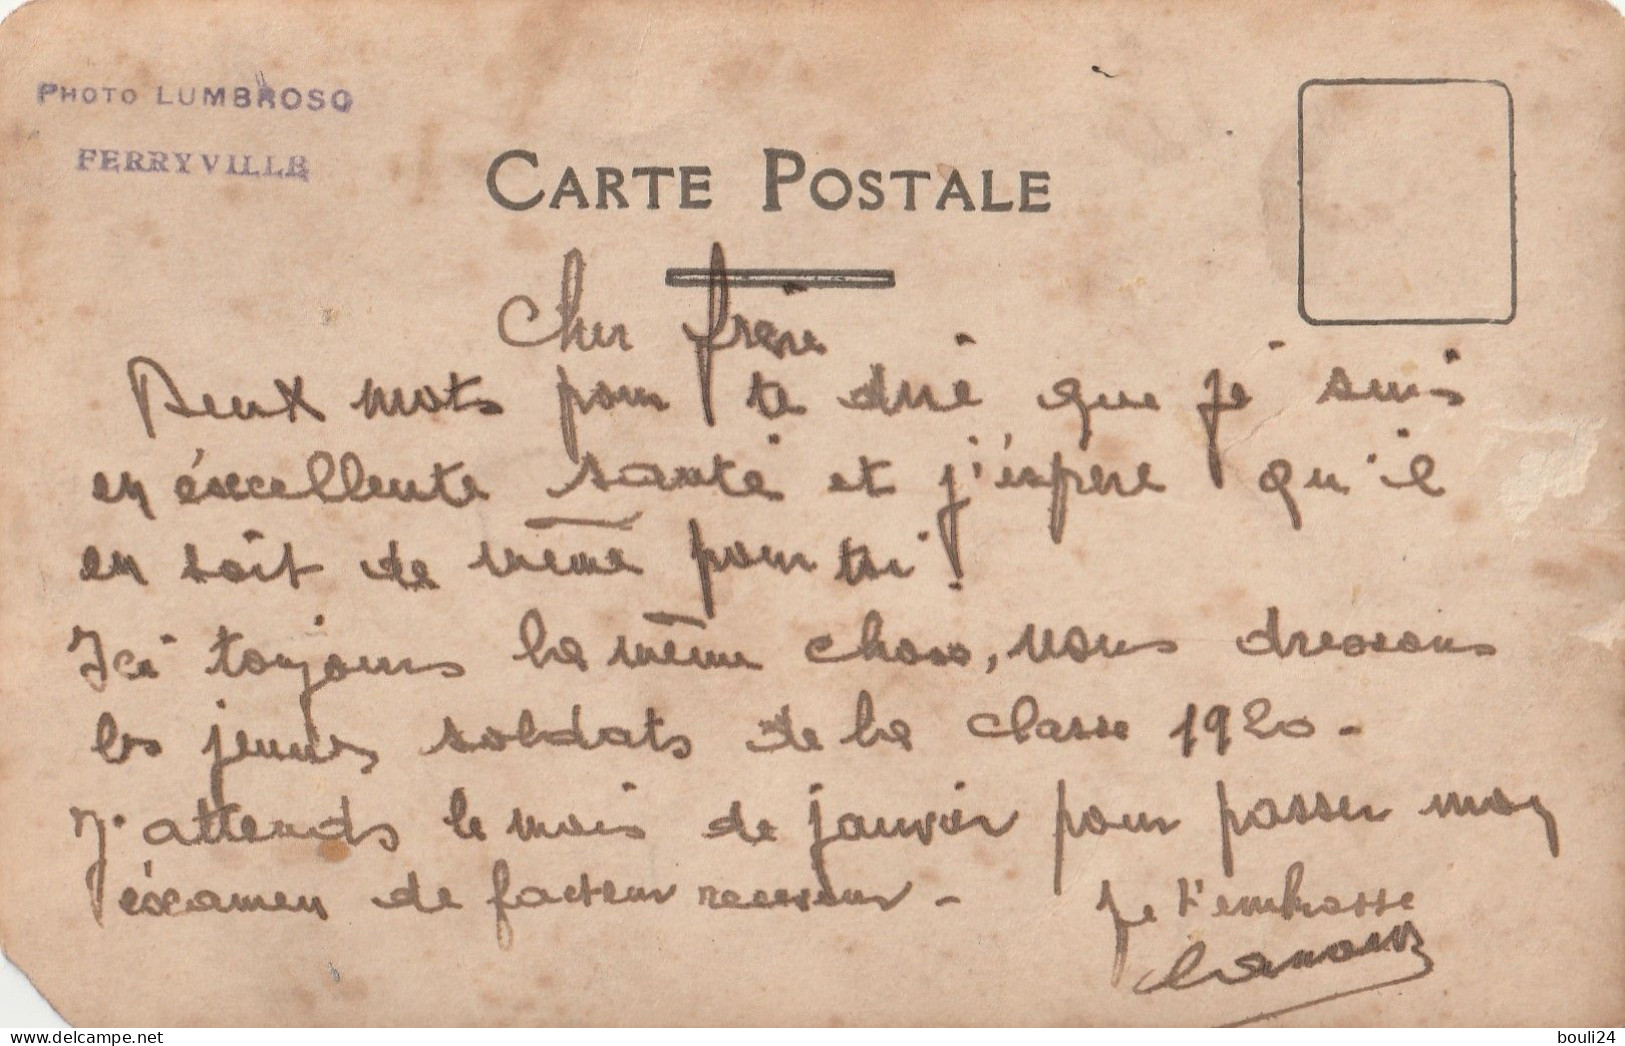 PHOTO LUMBROSO
FERRYVILLE
CARTE POSTALE
Cher frère
Deux mots pour te dire que je suis
en éxcellente santé et j'éspère qu'il
en soit de même pour toi.
Ici toujours la même chose, nous dressons
les jeunes soldats de la classe 1920 -
J'attends le mois de janvier pour passer mon
éxamen de facteur receveur - Je t'embrasse
bouli24